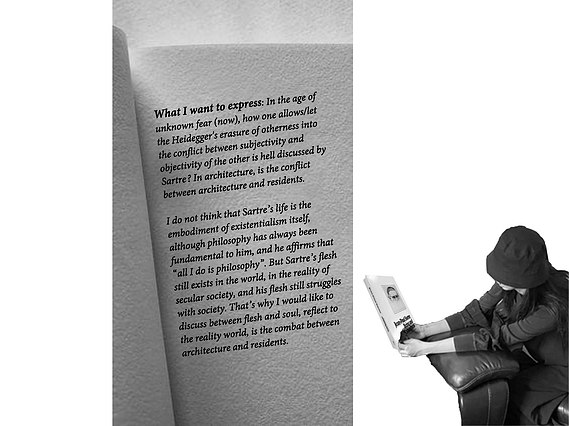 What I want to express: In the age of
unknown fear (now), how one allows/let
the Heidegger's erasure of otherness into
the conflict between subjectivity and
objectivity of the other is hell discussed by
Sartre? In architecture, is the conflict
between architecture and residents.
I do not think that Sartre's life is the
embodiment of existentialism itself,
although philosophy has always been
fundamental to him, and he affirms that
“all I do is philosophy”. But Sartre's flesh
still exists in the world, in the reality of
secular society, and his flesh still struggles
with society. That's why I would like to
discuss between flesh and soul, reflect to
the reality world, is the combat between
architecture and residents.